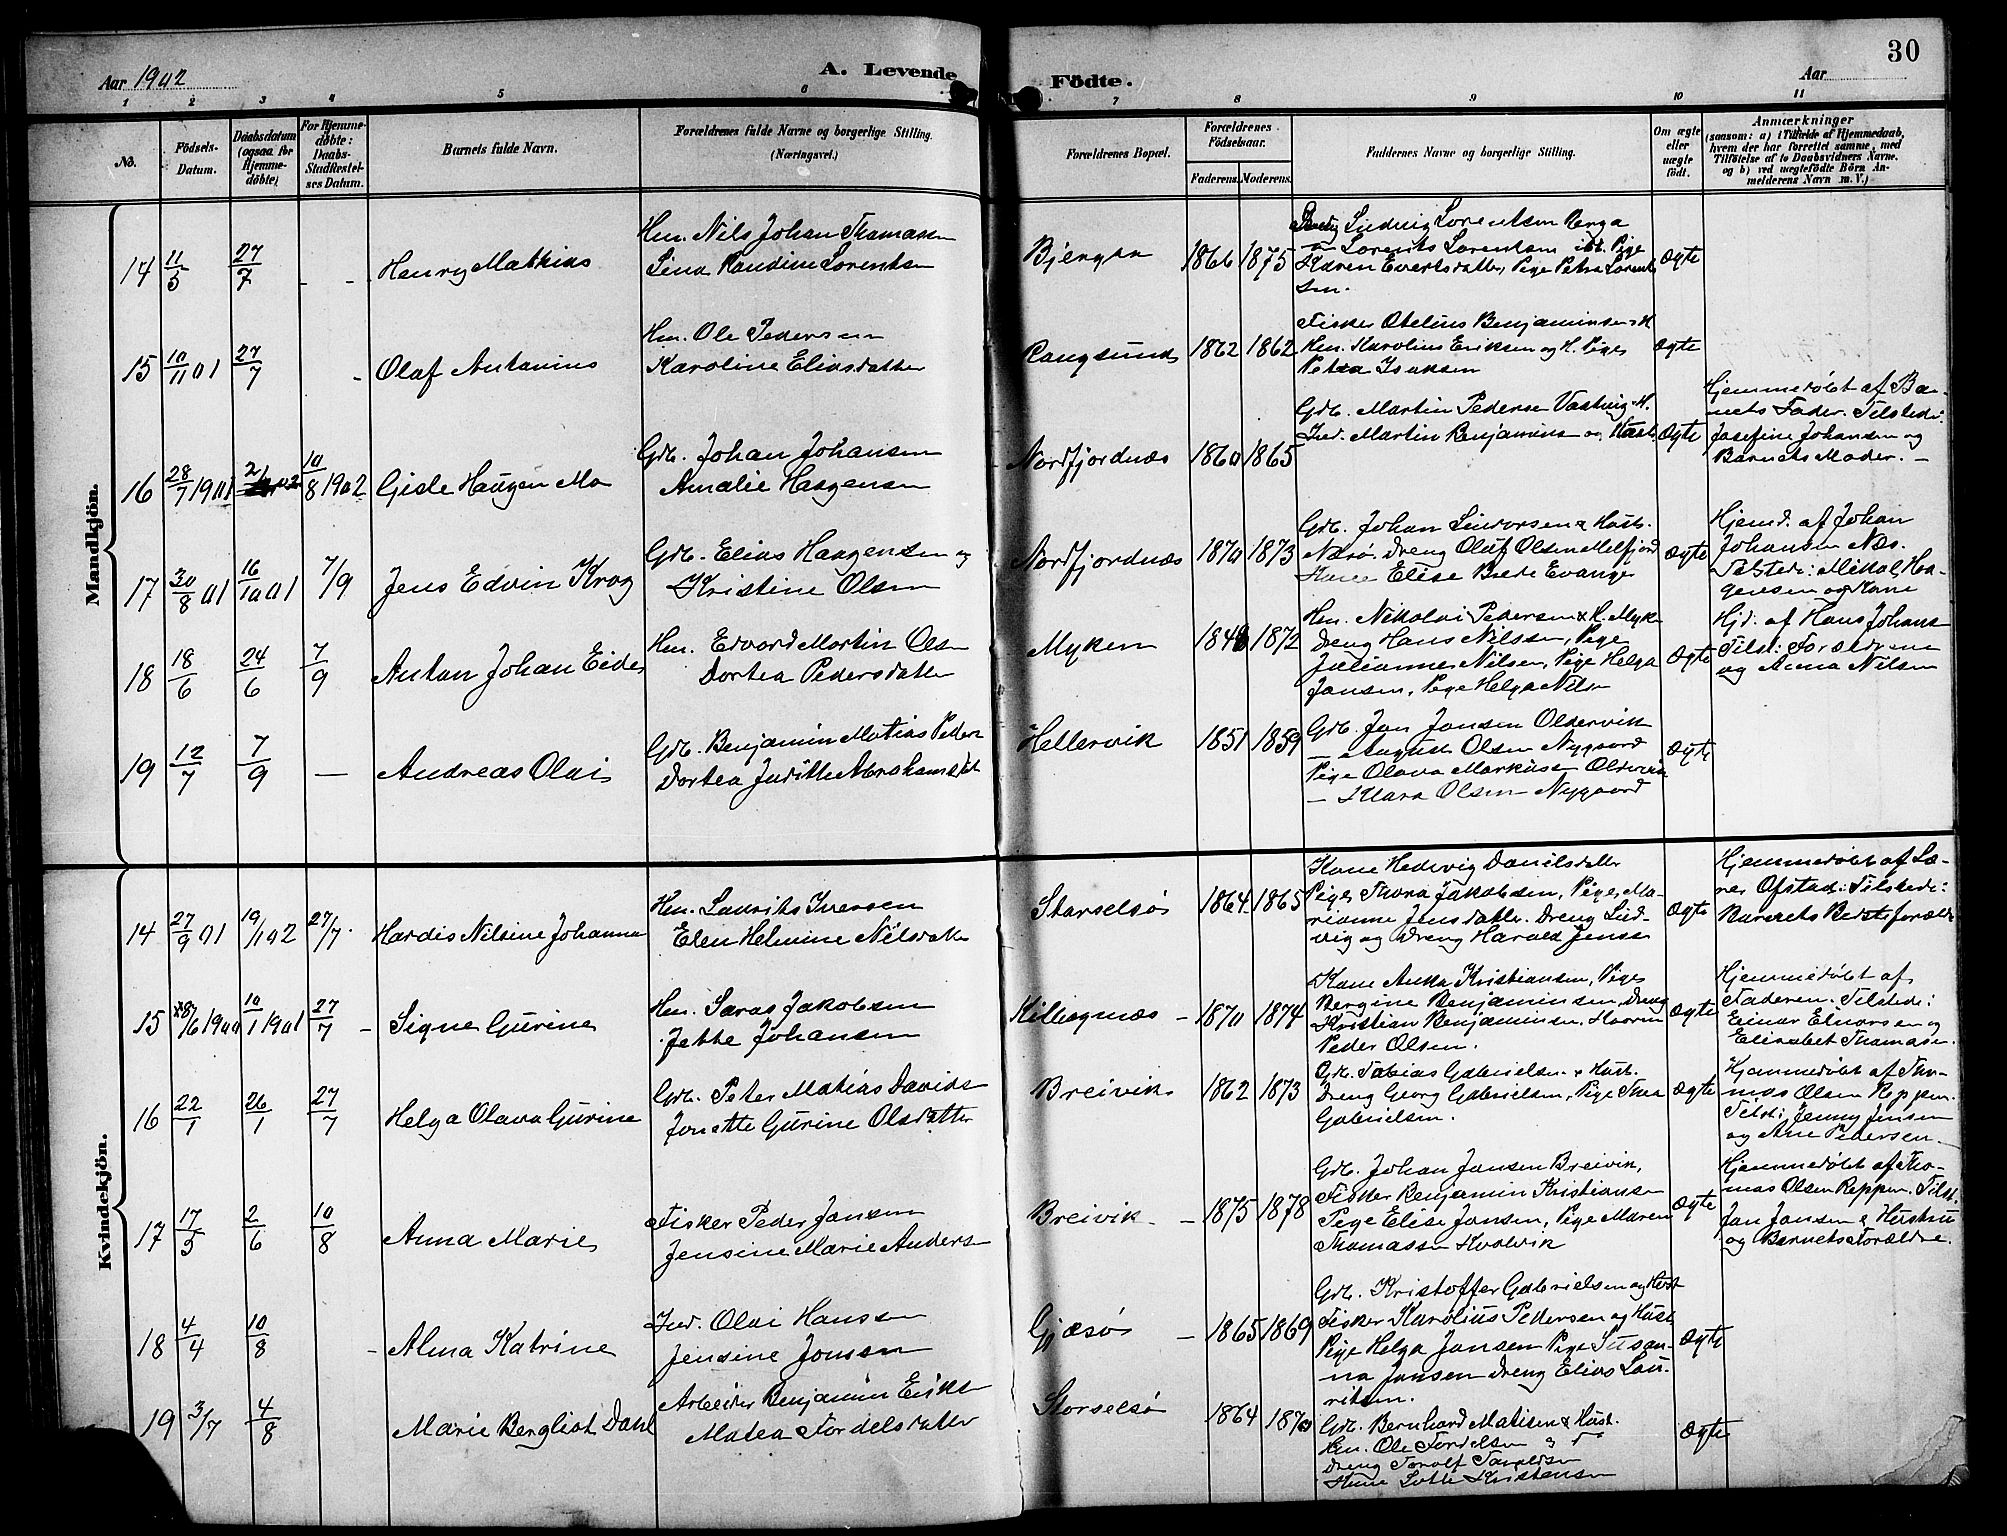 30
Aar 1902
A. Levende
Födte.
Aar
1 2 3 4 5 6 7 8 9 10 11
No.
Födsels-Datum.
Daabsdatum (ogsaa for Hjemme-döbte)
For Hjemme-döbte: Daabs-Stadfæstel-ses Datum.
Barnets fulde Navn.
Forældrenes fulde Navne og borgerlige Stilling. (Næringsvei.)
Forældrenes Bopæl.
Forældrenes Födselsaar.
Faderens. Moderens.
Faddernes Navne og borgerlige Stilling.
Om ægte eller uægte födt.
Anmærkninger
(saasom: a) i Tilfælde af Hjemmedaab,
hvem der har forrettet samme, med
Tilföielse af to Daabsvidners Navne.
og b) ved uægtefödte Börn An-
melderens Navn m. V.)
Mandkjön.
14 11/5 27/7 - - Henry Mathias
Hm. Nils Johan Thomassen
Lina Randine Lorentsen
Bjergan 1866 1875
Ludvig Lorentsen Berga
Lorents Lorentsen ibd. Pige
Karen Evertsdatter, Pige Petra Lorent-
sen.
Ægte
15 10/11 01 27/7 - Olaf Antonius
Hm. Ole Pedersen
Karoline Eliasdatter
Rangsund 1862 1862
Fisker Otelius Benjaminsen & H
Hm. Karolius Eriksen og H. Pige
Petra Isaksen
Ægte
16 28/7 1901 10/8 1902 Gisle Haugen Mo
Grb. Johan Johansen
Amalie Haagensen
Nordfjordnæs 1860 1865
Grb. Martin Pedersen Vaatvig & H.
Ind. Martin Benjamins og Hust.
Ægte
Hjemmedøbt af Bar-
nets Fader. Tilstede:
Josefine Johansen og
Barnets Moder. -
17 30/8 01 16/10 01 7/9 Jens Edvin Krog
Grb. Elias Haagensen og
Kristine Olsen
Nordfjordnæs 1870 1873
Grb. Johan Sindorsen & Hust.
Næsø. Dreng Oluf Olsen Melfjord
Elise Brede Evange
Ægte
Hjemd. af Johan
Johansen Næs.
Tilstede: Mikal Haa-
gensen og Kone
18 18/6 24/6 7/9 Anton Johan Eide
Hm. Edvard Martin Olsen
Dortea Pedersdatter
Myken 1848 1872
Hm. Nikolai Pedersen & H. Myken
Dreng Hans Nilssen, Pige
Julianne Nilsen, Pige Helga
Jansen, Pige Helga Nilsen
Ægte
Hjd. af Hans Johans
Tilst: Forældrene
og Anna Nilsen
19 12/7 7/9 — Andreas Olai
Grb. Benjamin Matias Peders
Dortea Judithe Abrahamsdat
Hellervik 1851 1859
Grb. Jan Jansen Oldervik
— August Olsen Nygaard
Pige Olava Markussen Oldervik
— Klara Olsen Nygaard
Ægte
Kvindekjön.
14 27/9 01 19/1 02 27/7 Hardis Nilsine Johanna
Hm. Laurits Iversen
Elen Helmine Nilsdatter
Storselsø 1864 1865
Kone Hedevig Danilsdatter
Pige Thora Jakobsen, Pige Ma-
rianne Jensdatter. Dreng Lud-
vig og Dreng Harald Jensen
Ægte
Hjemmedøbt af Læ-
rer Ofstad: Tilstede:
Barnets Bedsteforældre
15 /6 1900 10/1 1901 27/7 - Signe Gurine
Hm. Saras Jakobsen
Jette Johansen
Killiegnæs - 1870 1874
Kone Anna Kristiansen, Pige
Bergine Benjaminsen, Dreng
Kristian Benjaminsen,
Peder Olsen.
Ægte
Hjemmedøbt af
Faderen. Tilstede:
Einar Einarsen og
Elisabet Thomasen.
16 22/1 26/1 27/7 Helga Olava Gurine
Grb. Peter Matias Davids
Jonette Gurine Olsdatter
Breivik 1862 1873
Grb. Tobias Gabrielsen & Hust.
Dreng Georg Gabrielsen, Pige Thea
Gabrielsen.
Ægte
Hjemmedøbt af Tho-
mas Olsen Reppen.
Tilst: Jenny Jensen
og Ane Pedersen.
17 17/5 2/6 10/8 Anna Marie
Fisker Peder Jansen
Jensine Marie Anders
Breivik - 1875 1878
Grb. Johan Jansen Breivik,
Fisker Benjamin Kristiansen
Pige Elise Jansen, Pige Maren
Thomassen Kvalvik
Ægte
Hjemmedøbt af Tho-
mas Olsen Reppen. Tilst.
Jan Jansen & Hustru
og Barnets Forældre.
18 4/4 10/8 - Alma Katrine
Ind. Olai Hanssen
Jensine Jonsen
Gjæsø - 1865 1869
Grb. Kristoffer Gabrielsen og Hust
Fisker Karolius Pedersen og Hust
Pige Helga Jansen Pige Susan-
na Jansen Dreng Elias Lau-
ritsen.
Ægte
19 3/7 4/8 Marie Bergliot Dahl
Arbeider Benjamin Eriks
Matea Tordelsdatter
Storselsø 1864 1870
Grb. Bernhard Matisen & Hust.
Hm. Ole Tordelsen
Dreng Torolf Toroldsen
Lotte Kristensen
Ægte